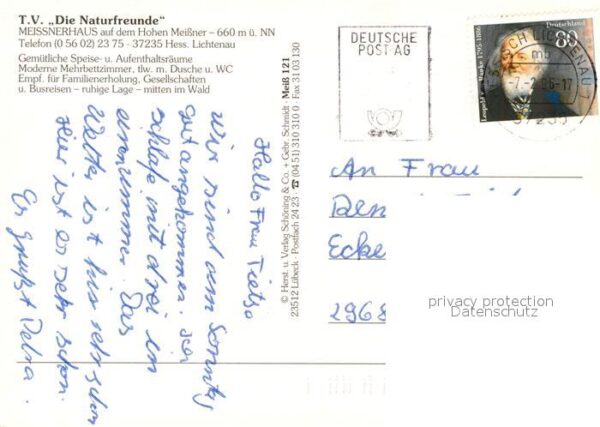 T.V. „Die Naturfreunde"
MEISSNERHAUS auf dem Hohen Meißner – 660 m ü. NN
Telefon (0 56 02) 23 75 · 37235 Hess. Lichtenau
Gemütliche Speise- u. Aufenthaltsräume
Moderne Mehrbettzimmer, tlw. m. Dusche u. WC
Empf. für Familienerholung, Gesellschaften
u. Busreisen – ruhige Lage – mitten im Wald
Hallo Frau
Wir sind am Sonntag
gut angekommen.
schlafe mit drei in
einem Zimmer. Das
Wetter ist bis sehr schön
Hier ist es sehr schön.
Es grüßt Petra.
© Herst. u. Verlag Schöning & Co. + Gebr. Schmidt · Meiß 121
23512 Lübeck · Postfach 24 23 · ☎ (04 51) 310 310 0 · Fax 31 03 130
DEUTSCHE
POST AG
HESSISCH LICHTENAU 1
mb
-7.-2.96-17
37235
Deutschland
80
Leopold von Ranke 1795-1886
An Frau
Ben
Ecke
2968
privacy protection
Datenschutz